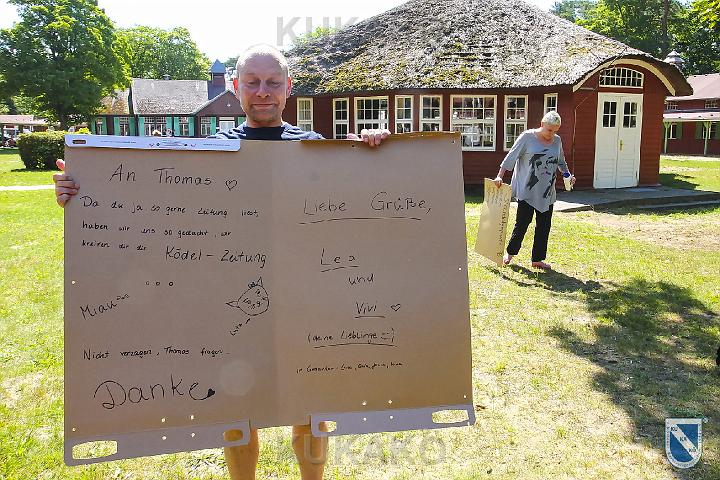 KUKAKO
An Thomas ♡
Da du ja so gerne Zeitung liest,
haben wir uns so gedacht, wir
kreiren dir die
Ködel-Zeitung
Miau
Nicht verzagen, Thomas fragen.
Danke
Liebe Grüße,
Lea
und
Vivi ♡
(deine Lieblinge =)
KUKAKO